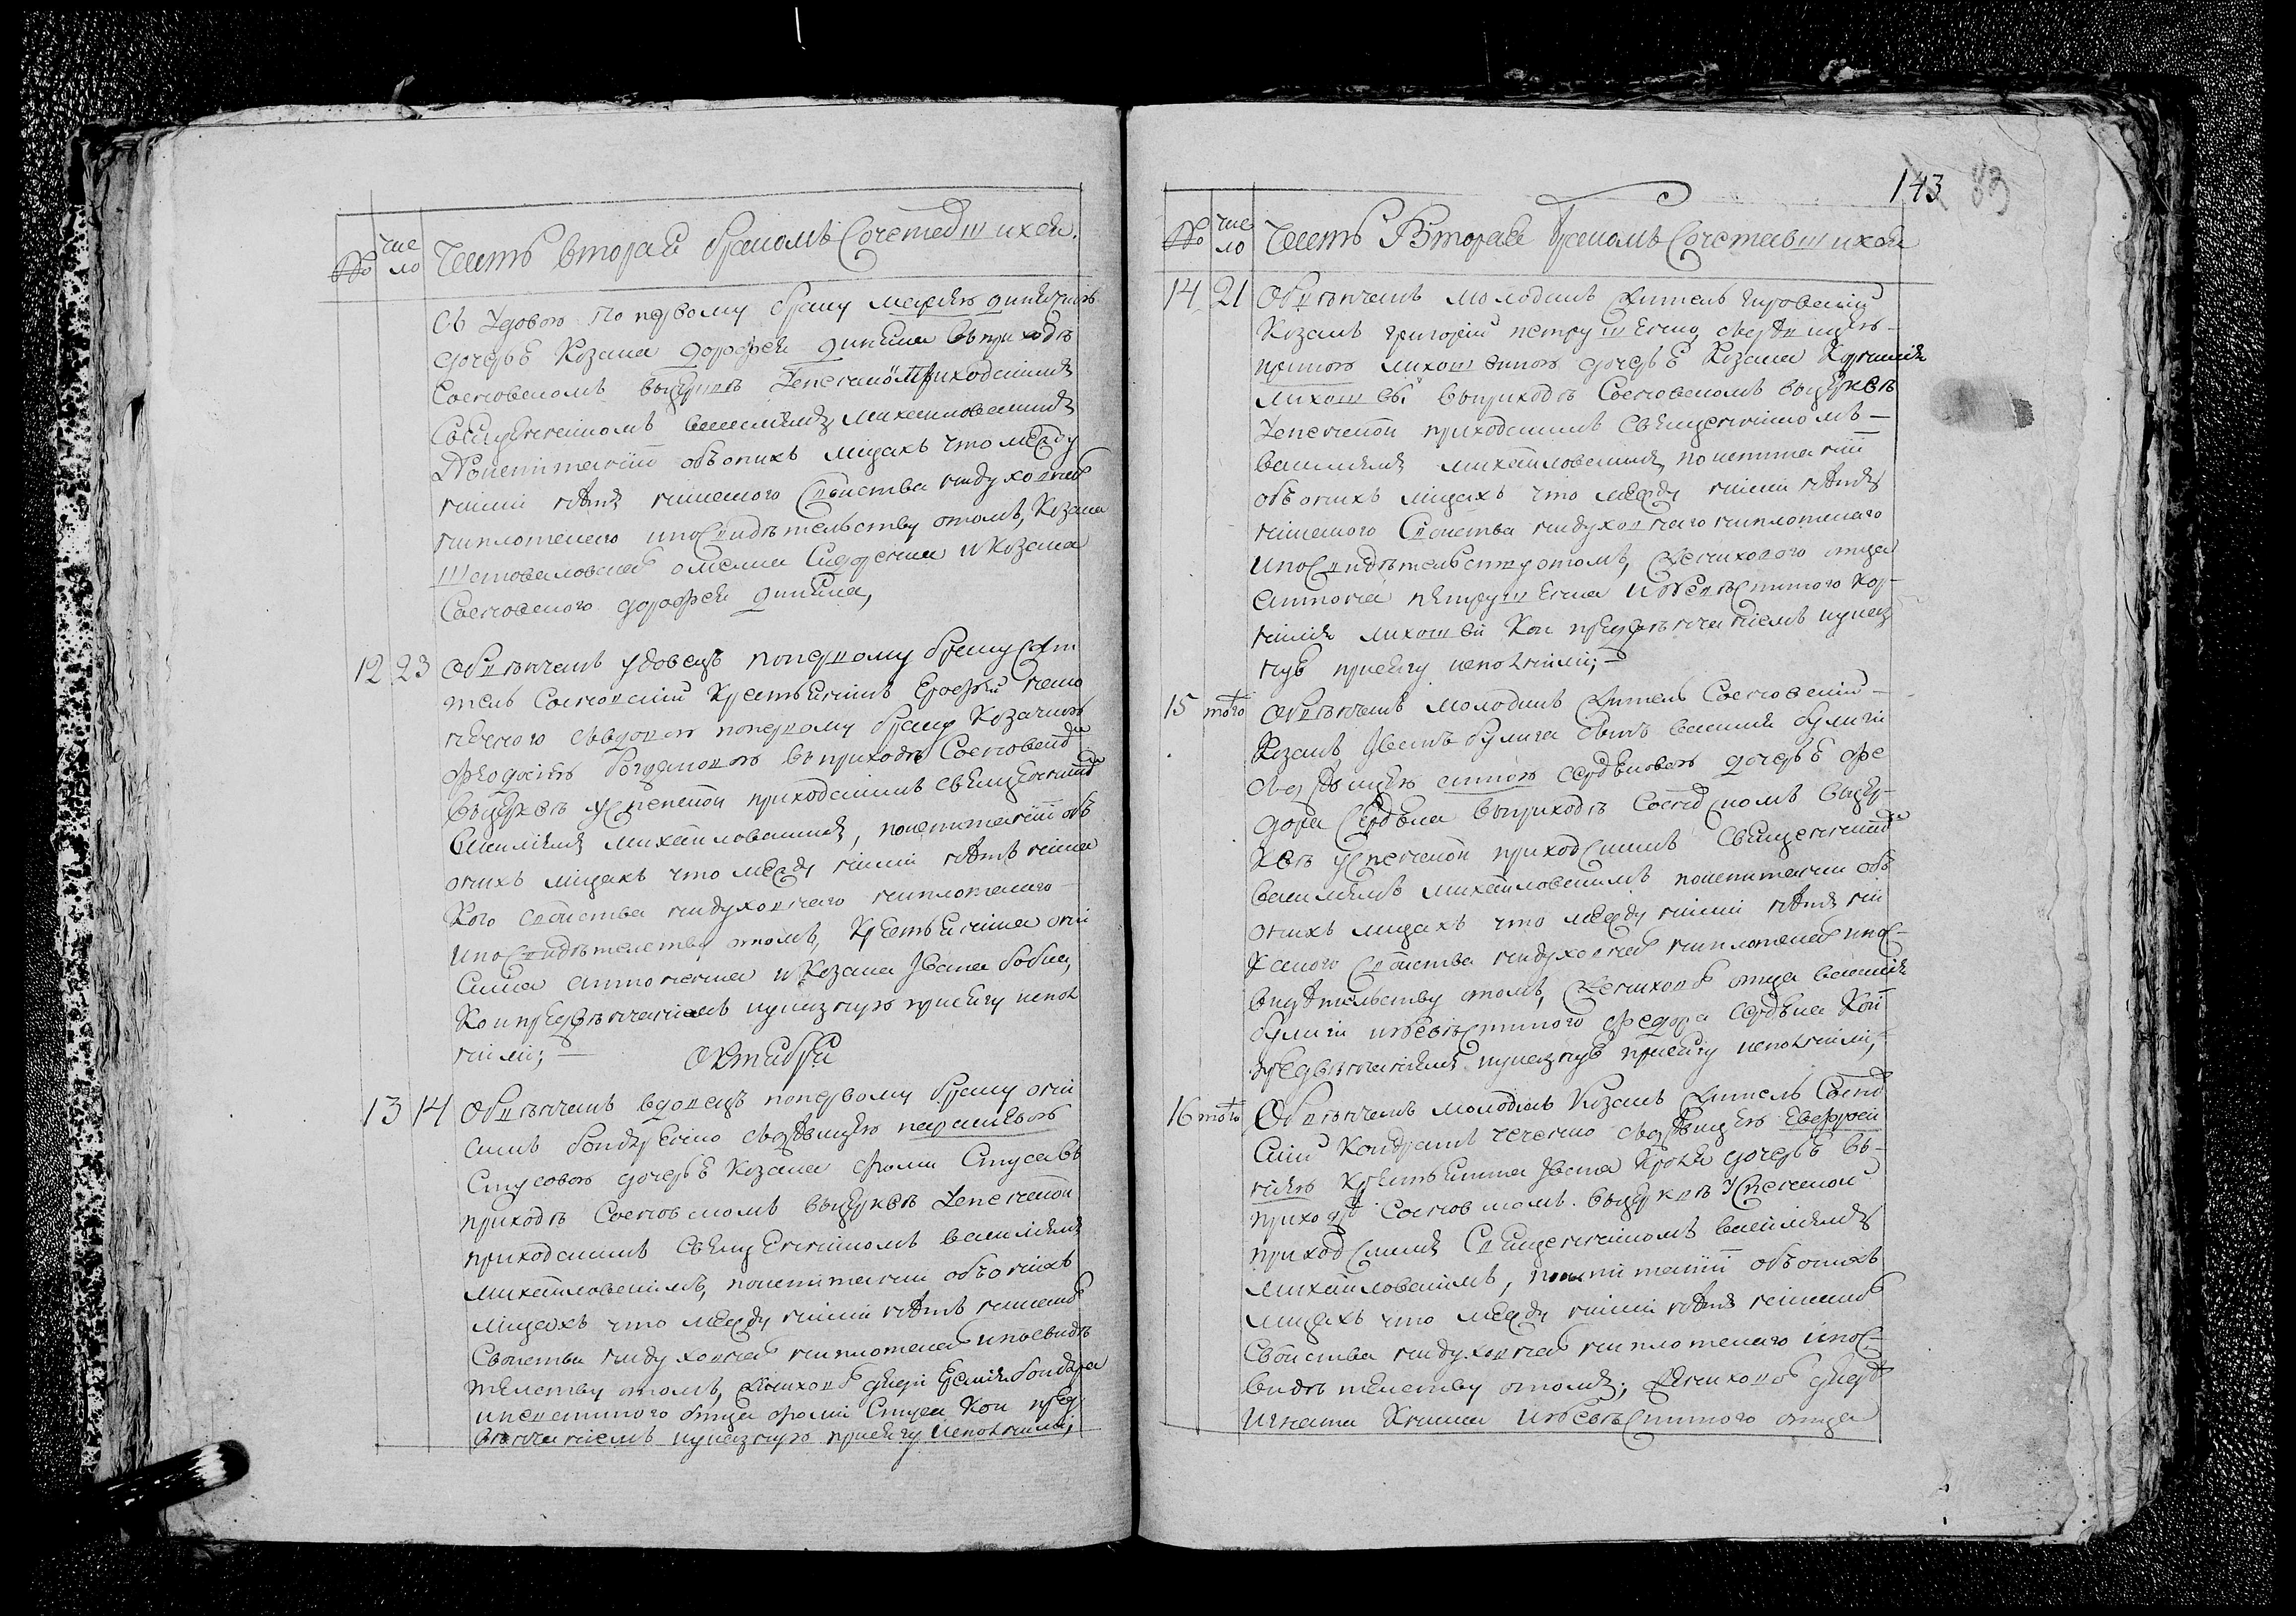 № число Часть вторая бракомъ Сочетавшихся.
съ удовою по первому браку маріею дикѣвною
дочерѣ козака дорофея дикѣна въ приходѣ
Сосновскомъ въ церквѣ Успенской приходскимъ
Священникомъ василіемъ михайловскимъ
По испитаніи объ онихъ лицахъ что между
ними нѣтъ никакого свойства ни духовнаго
ни плотскаго и по свидѣтельству о томъ, козака
омелка Сидоренка и козака
Сосновского дорофея дикѣна,
12 23 Обвѣнчанъ удовецъ по первому браку жи
тель Сосновскій крестьянинъ Ерофѣй
съ вдовою по первому браку козачкою
феодосіею богдановою въ приходѣ Сосновском
въ церквѣ успенской приходскимъ священником
василіемъ михайловскимъ, по испитаніи объ
онихъ лицахъ что между ними нѣтъ ника
кого свойства ни духовнаго ни плотскаго
и по свидѣтелству о томъ, крестьянина они
сима антоненка и козака Ивана бобка,
кои предъ вѣнчаніемъ указную присягу испол
нили; —
Октября
13 14 Обвѣнчанъ вдовецъ по первому браку они
симъ бондаренко съ дѣвицею параскевою
Стусовою дочерѣ козака фоми Стуса въ
приходѣ Сосновскомъ въ церквѣ Успенской
приходскимъ священникомъ василіемъ
михайловскимъ, по испитаніи объ онихъ
лицахъ что между ними нѣтъ никакого
свойства ни духовнаго ни плотскаго и по свидѣ
телству о томъ, женихового дяди бондаря
и невестиного отца фоми Стуса кои пред
вѣнчаніемъ указную присягу исполнили;
143 83
№ число Часть Вторая бракомъ Сочетавшихся
14 21 Обвѣнчанъ молодикъ житель
козакъ григорій петрушенко, съ дѣвицею
лихошвиною дочерѣ козака корнилія
лихошвы въ приходѣ Сосновскомъ въ церквѣ
Успенской приходскимъ священникомъ
василіемъ михайловскимъ, по испитаніи
объ онихъ лицахъ что между ними нѣтъ
никакого свойства ни духовнаго ни плотскаго
и по свидѣтельству о томъ, женихового отца
антона петрушенка и невѣстиного кор
нилія лихошви кои предъ вѣнчаніемъ указ
ную присягу исполнили; —
15 того Обвѣнчанъ молодикъ житель Сосновскій
козакъ Иванъ булига синъ василія булиги
съ дѣвицею анною сердюковою дочерѣ фе
дора сердюка въ приходѣ Сосновскомъ въ цер
квѣ успенской приходскимъ священником
василіемъ михайловскимъ по испитаніи объ
онихъ лицахъ что между ними нѣтъ ни
какого свойства ни духовнаго ни плотскаго и по с
видѣтельству о томъ, женихового отца василія
булиги и невѣстиного федора сердюка кои
предъ вѣнчаніемъ указную присягу исполнили,
16 того Обвѣнчанъ молодикъ козакъ житель Сосно
вскій кондратъ чеченко съ дѣвицею Евфроси
ніею крестьянина Ивана дочерѣ въ
приходѣ Сосновскомъ въ церквѣ Успенской
приходскимъ священникомъ василіемъ
михайловскимъ, по испитаніи объ онихъ
лицахъ что между ними нѣтъ никакого
свойства ни духовнаго ни плотскаго и по с
видѣтелству о томъ; женихового дяди
игната и невѣстиного отца